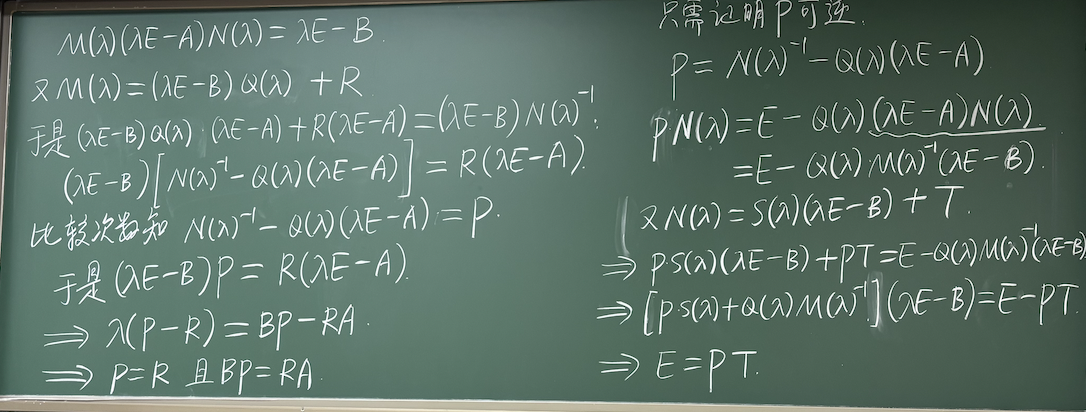 M(λ)(λE-A)N(λ)=λE-B
又M(λ)=(λE-B)Q(λ)+R
于是(λE-B)Q(λ)(λE-A)+R(λE-A)=(λE-B)N(λ)⁻¹.
(λE-B)[N(λ)⁻¹-Q(λ)(λE-A)]=R(λE-A).
比较次数知 N(λ)⁻¹-Q(λ)(λE-A)=P.
于是(λE-B)P=R(λE-A).
⇒ λ(P-R)=BP-RA.
⇒ P=R 且BP=RA.
只需证明P可逆.
P=N(λ)⁻¹-Q(λ)(λE-A)
PN(λ)=E-Q(λ)(λE-A)N(λ)
=E-Q(λ)M(λ)⁻¹(λE-B).
又N(λ)=S(λ)(λE-B)+T.
⇒ PS(λ)(λE-B)+PT=E-Q(λ)M(λ)⁻¹(λE-B)
⇒ [PS(λ)+Q(λ)M(λ)⁻¹](λE-B)=E-PT
⇒ E=PT.